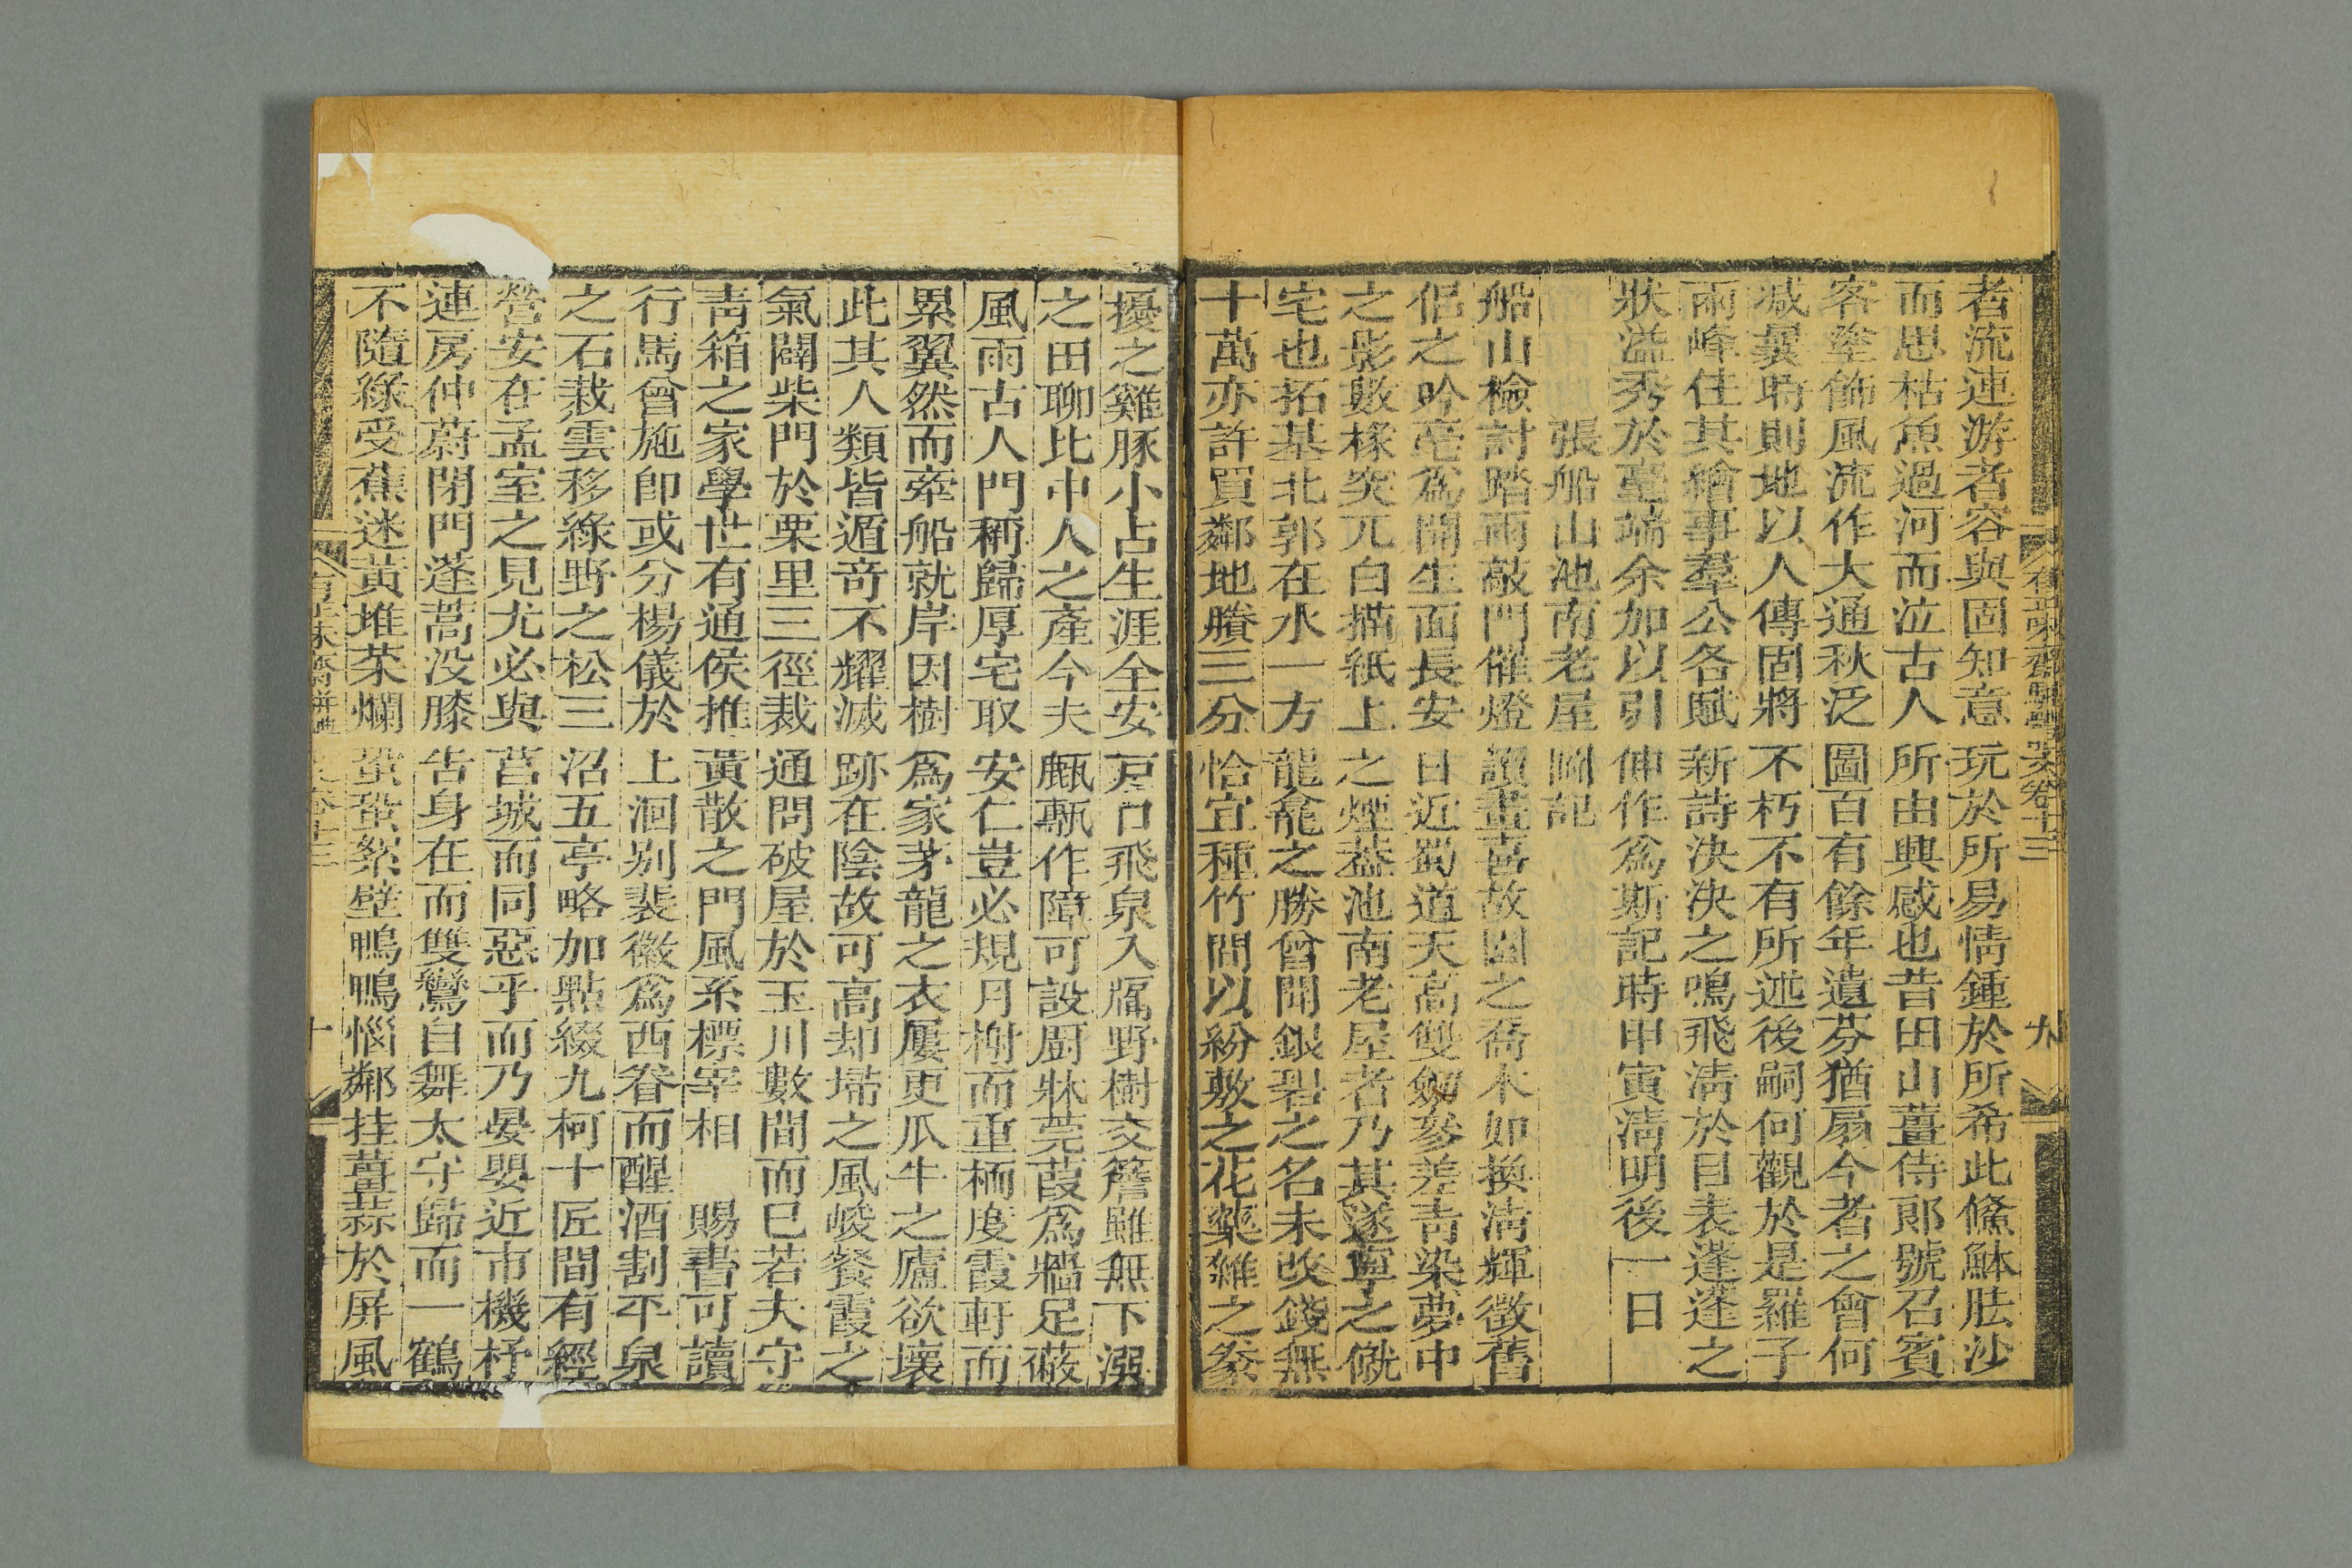 有正味齋駢體文卷十三 九
者流連游者容與固知意玩於所易情鍾於所希此鯈鮇胠沙
而思枯魚過河而泣古人所由興感也昔田山薑侍郎號召賓
客塗飾風流作大通秋泛圖百有餘年遺芬猶扇今者之會何
减曩時則地以人傳固將不朽不有所述後嗣何觀於是羅子
兩峰任其繪事羣公各賦新詩決決之鳴飛淸於目表蓬蓬之
狀溢秀於毫端余加以引伸作爲斯記時甲寅淸明後一日
張船山池南老屋圖記
船山檢討踏雨敲門催燈讀畫喜故園之喬木如換淸輝徵舊
侶之吟毫爲開生面長安日近蜀道天高雙劒參差靑染夢中
之影數椽突兀白描紙上之煙葢池南老屋者乃其遂寧之僦
宅也拓基北郭在水一方龍龕之勝曾聞銀礐之名未改錢無
十萬亦許買鄰地賸三分恰宜種竹間以紛敷之花藥雜之豢
擾之雞豚小占生涯全安戸口飛泉入牖野樹交簷雖無下潠
之田聊比中人之產今夫甒甎作障可設厨牀莞葭爲牆足蔽
風雨古人門稱歸厚宅取安仁豈必規月榭而重桶度霞軒而
累翼然而牽船就岸因樹爲家茅龍之衣屢更瓜牛之廬欲壞
此其人類皆遁竒不耀滅跡在陰故可高却埽之風峻餐霞之
氣闢柴門於栗里三徑裁通問破屋於玉川數間而已若夫守
靑箱之家學世有通侯推黃散之門風系標宰相 賜書可讀
行馬曾施卽或分楊儀於上洄别裴徽爲西眷而醒酒割平泉
之石栽雲移綠野之松三沼五亭略加點綴九柯十匠間有經
營安在孟室之見尤必與莒城而同惡乎而乃晏嬰近市機杼
連房仲蔚閉門蓬蒿没膝告身在而雙鸞自舞太守歸而一鶴
不隨綠受蕉迷黃堆茶爛蛩蛩絮壁鴨鴨惱鄰挂薑蒜於屏風
有正味齋駢體文卷十三 十